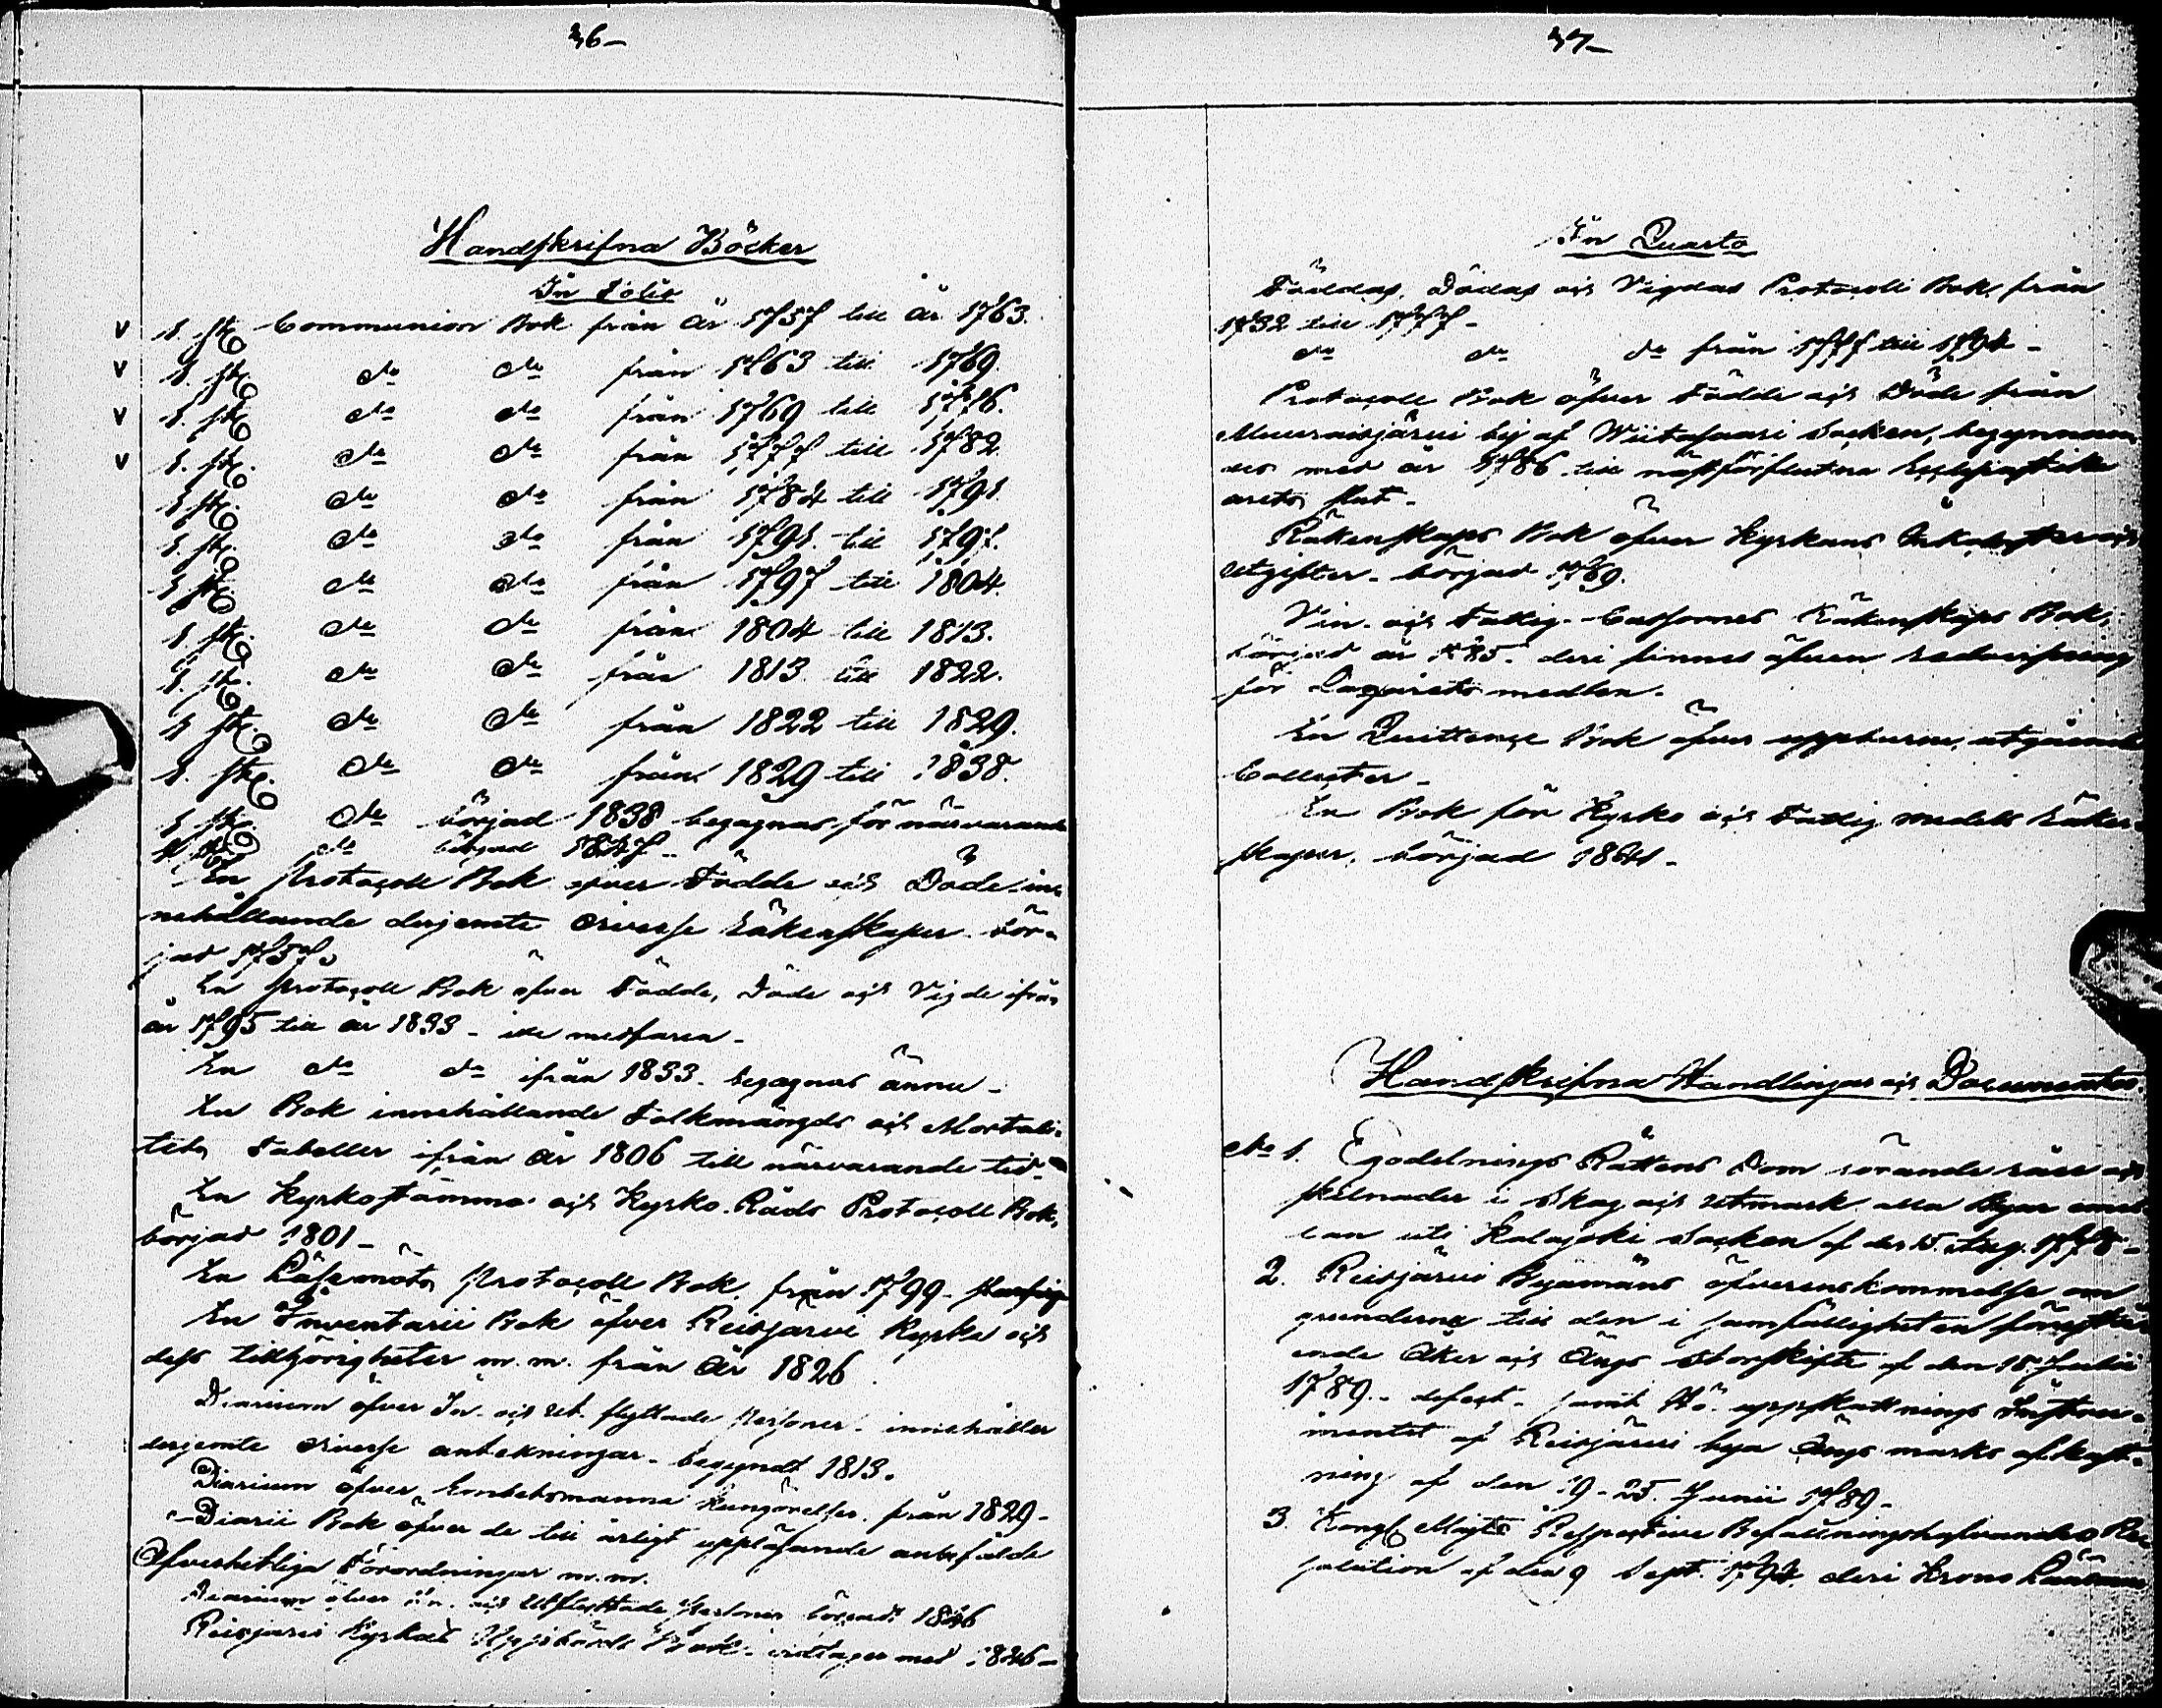 36-
Handskrifna Böcker
In Folio
v 1. st. Communion Bok från år 1757 till år 1763.
v 1. st. do do från 1763 till 1769.
v 1. st. do do från 1769 till 1776.
v 1. st. do do från 1777 till 1782
1 st. do do från 1784 till 1791
1. st. do do från 1791. till 1797.
1 st. do do från 1797 till 1804.
1 st. do do från 1804 till 1813.
1. st. do do från 1813 till 1822.
1 st. do do från 1822 till 1829.
1. st. do do från 1829 till 1838.
1 st. do börjad 1838 begagnas för närvarande
1 st. do börjad 1847 -
En Protocoll Bok öfver Födde och Döde in-
nehållande derjemte diverse Räkenskaper. bör-
jad 1757.
En Protocoll Bok öfver Födde, Döde och Vigde ifrån
år 1795 till år 1833 - illa medfaren -
En do do ifrån 1833. begagnas ännu -
En Bok innehållande Folkmängds och Mortali-
tets Tabeller ifrån år 1806 till närvarande tid -
En Kyrkostämmo och Kyrko-Råds Protocoll Bok,
börjad 1801 -
En Läsemöts Protocoll Bok, från 1799 -
En Inventarii Bok öfver Reisjärvi Kyrka och
dess tillhörigheter m.m. från år 1826
Diarium öfver In- och Ut-flyttade Personer - innehåller
derjemte diverse antekningar - begynt 1813.
Diarium öfver Embetsmanna Kungörelser, från 1829 -
Diarii Bok öfver de till årligt uppläsande anbefalde
Öfverhetliga Förordningar m.m.
Diarium öfver In- och Utflyttade Personer börjadt 1846
Reisjärvi Kyrkas Uppbörds Bok - vidtager med 1846 -
37-
In Quarto
Föddas, Dödas och Vigdas Protocoll Bok, från
1732 till 1777 -
do do do från 1777 till 1794 -
Protocoll Bok öfver Födde och Döde från
Muurasjärvi by af Wiitasaari Socken, begynnan-
des med år 1786 till nästförflutna Ecclesiastik
årets slut -
Räkenskaps Bok öfver Kyrkans Inkomster och
Utgifter - börjad 1769.
Vin- och Fattig-Cassornes Räkenskaps Bok,
börjad år 1785. deri finnes äfven redovisning
för Lazarets medlen.
En Quittence Bok öfver uppburne, utgående
Collecter -
En Bok för Kyrko och Fattig medels Räken-
skaper, börjad 1841 -
Handskrifna Handlingar och Documenter.
No 1. Egodelnings Rättens Dom rörande råer och
skilnader i Skog och Utmark alla Byar emel-
lan uti Kalajoki Socken af den 15. Aug. 1778 -
2. Reisjärvi Byamäns öfverenskommelse om
grunderna till den i samfälligheten
ende Åker och Ängs Storskifte af den 18. Julii
1789. - defect - samt Hö- uppskattnings Instru-
mentet af Reisjärvi bya Ängs marks afkast-
ning af den 19 - 25. Junii 1789 -
3. Kongl. Majts Respective Befallningshafvandes Re-
solution af den 9 Sept. 1794. deri Krono Länsman